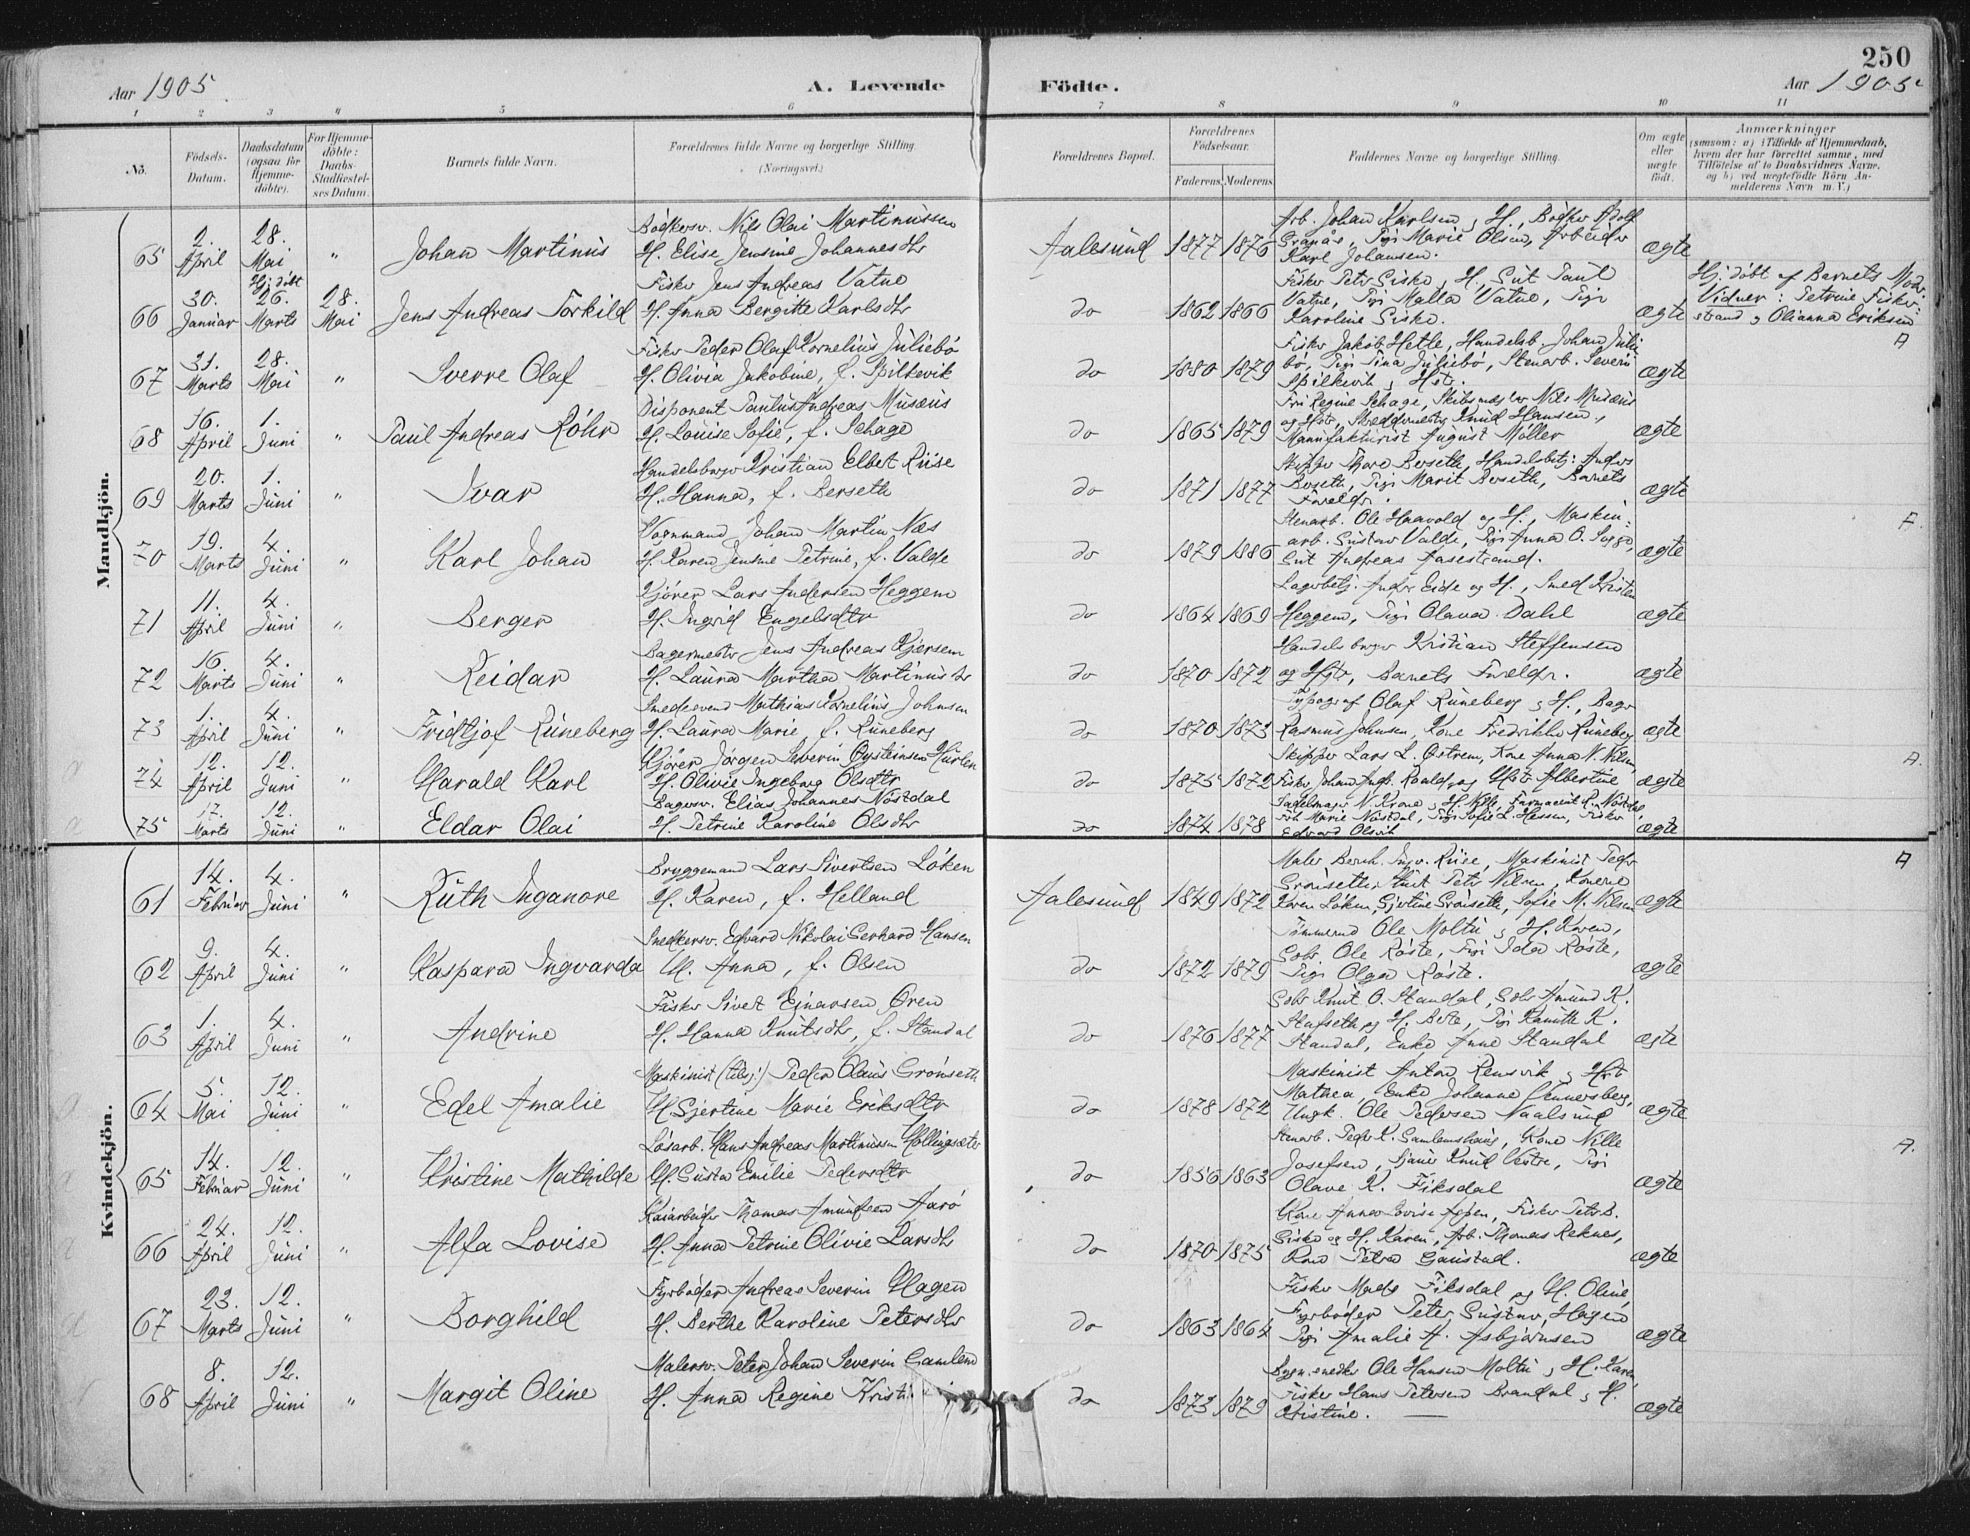 250
Aar 1905
A. Levende Födte.
Aar 1905
1 2 3 4 5 6 7 8 9 10 11
No.
Födsels-Datum.
Daabsdatum (ogsaa for Hjemmedöbte).
For Hjemmedöbte: Daabs-Stadfæstelses Datum.
Barnets fulde Navn.
Forældrenes fulde Navne og borgerlige Stilling (Næringsvei.)
Forældrenes Bopæl.
Forældrenes Födselsaar.
Faderens. Moderens.
Faddernes Navne og borgerlige Stilling.
Om ægte eller uægte födt.
Anmærkninger
(saasom: a) i Tilfælde af Hjemmedaab, hvem der har forrettet samme, med Tilföielse af to Daabsvidners Navne, og b) ved uægtefödte Börn Anmelderens Navn m. V.)
Mandkjön.
65 2. April 28. Mai " Johan Martinus
Bødkersv. Nils Olai Martinussen
H. Elise Jensine Johannesdtr
Aalesund 1877 1876
Arb. Johan Karlsen, H., Bødker Adolf
Granås, Pigi Marie Olsen, Arbeider
Karl Johansen.
ægte
66 30. Januar Hj. døbt 26. Marts 28. Mai Jens Andreas Torkild
Fisker Jens Andreas Vatne
H. Anna Bergitte Karlsdtr
do 1862 1866
Fisker Petr Siske, H., Gut Paul
Vatne, Pigi Malta Vatne, Pigi
Karoline Siske.
ægte
Hj. døbt af Barnets Moder.
Vidner: Petrine Fiskerstrand og Olianna Eriksen
67 31. Marts 28. Mai " Sverre Olaf
Fisker Peder Olaf Kornelius Juliebø
H. Olivia Jakobine, f. Spilkevik
do 1880 1879
Fisker Jakob Hetle, Handelsb. Johan Juliebø, Pigi Tina Juliebø, Stenarb. Severin
Spilkevik, Hstr.
ægte
A
68 16. April 1. Juni " Paul Andreas Röhr
Disponent Paulus Andreas Musæus
H. Louise Sofie, f. Schage
do 1865 1879
Frk Regine Schage, Skibsmægler Nils Musæus
og Hstr, Skreddermester Knud Hansen,
Manufakturist August Møller
ægte
69 20. Marts 1. Juni " Ivar
Handelsborger Kristian Elbert Riise
H. Hanna, f. Berseth
do 1871 1877
Skipper Thore Berseth, Handelsbetj. Anders
Berseth, Pigi Marit Berseth, Barnets
Forældr.
ægte
70 19. Marts 4. Juni " Karl Johan
Vognmand Johan Martin Næs
H. Karen Jensine Petrine, f. Valde
do 1879 1886
Stenarb. Ole Haavold og H., Maskinarb. Gustav Valde, Pigi Anna O.
Gut Andreas Aasestrand.
ægte
A.
71 11. April 4. Juni " Berger
Kjører Lars Andersen Heggem
H. Ingrid Engelsdtr
do 1864 1869
Lagerbetj. Anders Eide og H., Smed Kristen
Heggem, Pigi Olava Dahl
ægte
72 16. Marts 4. Juni " Reidar
Bagermester Jens Andreas Kjersem
H. Laura Martha Martinusdtr
do 1870 1872
Handelsborger Kristian Steffensen
og Hstr, Barnets Forældr.
ægte
73 1. April 4. Juni " Fridtjof Runeberg
Smedesvend Mathias Kornelius Johnsen
H. Laura Marie, f. Runeberg
do 1870 1873
Typograf Olaf Runeberg og H., Bager
Rasmus Johnsen, Kone Fredrikke Runeberg
ægte
74 12. April 12. Juni " Harald Karl
Kjører Jørgen Severin Øysteinsen Hurlen
H. Olivie Ingeborg Olsdtr
do 1875 1872
Skipper Lars L. Østrem, Kone Anna N. Nilsen,
Fisker Johan Aug. Roald og Hstr Albertine
ægte
A.
75 17. Marts 12. Juni " Eldar Olai
Bagersv. Elias Johannes Nøstdal
H. Petrine Karoline Olsdtr
do 1874 1878
Sadelmager N. Krone og H. Nille, Farmaceut R. Nøstdal,
Frk Marie Nøstdal, Pigi Sofie L. Hessen, Fisker
Edvard Olsvik
ægte
Kvindekjön.
61 14. Februar 4. Juni " Ruth Inganore
Bryggemand Lars Sivertsen Løken
H. Karen, f. Helland
Aalesund 1849 1872
Maler Bernh. Ingv. Riise, Maskinist Peder
Grønseth, Gut Petr Nilsen, Konerne
Karen Løken, Gjertine Grønseth, Sofie M. Nilsen
ægte
A
62 9. April 4. Juni " Kaspara Ingvarda
Snedkersv. Edvard Nikolai Gerhard Hansen
H. Anna, f. Olsen
do 1872 1879
Tømmermd Ole Moltu og H. Karen,
Gbr. Ole Røste, Pigi Ida Røste,
Pigi Olga Røste.
ægte
63 1. April 4. Juni " Andrine
Fisker Sivert Ejnarsen Øren
H. Hanna Knutsdtr, f. Standal
do 1876 1877
Gbr Knut O. Standal, Gbr Amund K.
Stafseth og H. Berte, Pigi Kanutte K.
Standal, Enke Anne Standal
ægte
64 5. Mai 12. Juni " Edel Amalie
Maskinist (tilsj.) Peder Olaus Grønseth
H. Gjertine Marie Eriksdtr
do 1878 1872
Maskinist Anton Remsvik og Hstr
Mathea, Enke Johanne Gunnersberg,
Ungk. Ole Pedersen Naalsund
ægte
65 14. Februar 12. Juni " Kristine Mathilde
Løsarb. Hans Andreas Martinussen Hollingsæter
H. Gusta Emilie Pedersdtr
do 1856 1863
Stenarb. Peder K. Gamlemshaug, Kone Nille
Josefsen, Knud Vestre, Pigi
Olave K. Fiksdal
ægte
A.
66 24. April 12. Juni " Alfa Lovise
Kaiarbeider Thomas Amundsen Aarø
H. Anna Petrine Olivie Larsdtr
do 1870 1875
Kone Anne Lovise Aspen, Fisker Petr B.
Siske og H. Karen, Arb. Thomas Reknes,
Kone Petra Gaustad.
ægte
67 23. Marts 12. Juni " Borghild
Fyrbøder Andreas Severin Hagen
H. Berthe Karoline Petersdtr
do 1863 1864
Fisker Mads Fiksdal og H. Oline,
Fyrbøder Peter Gustav Hagen
Pigi Amalie A. Asbjørnsen
ægte
68 8. April 12. Juni " Margit Oline
Malersv. Peter Johan Severin Gamlem
H. Anna Regine
do 1873 1879
Bygn.snedker Ole Hansen Moltu og H. Karen,
Fisker Hans Petersen Brandal og H.
Kristine.
ægte